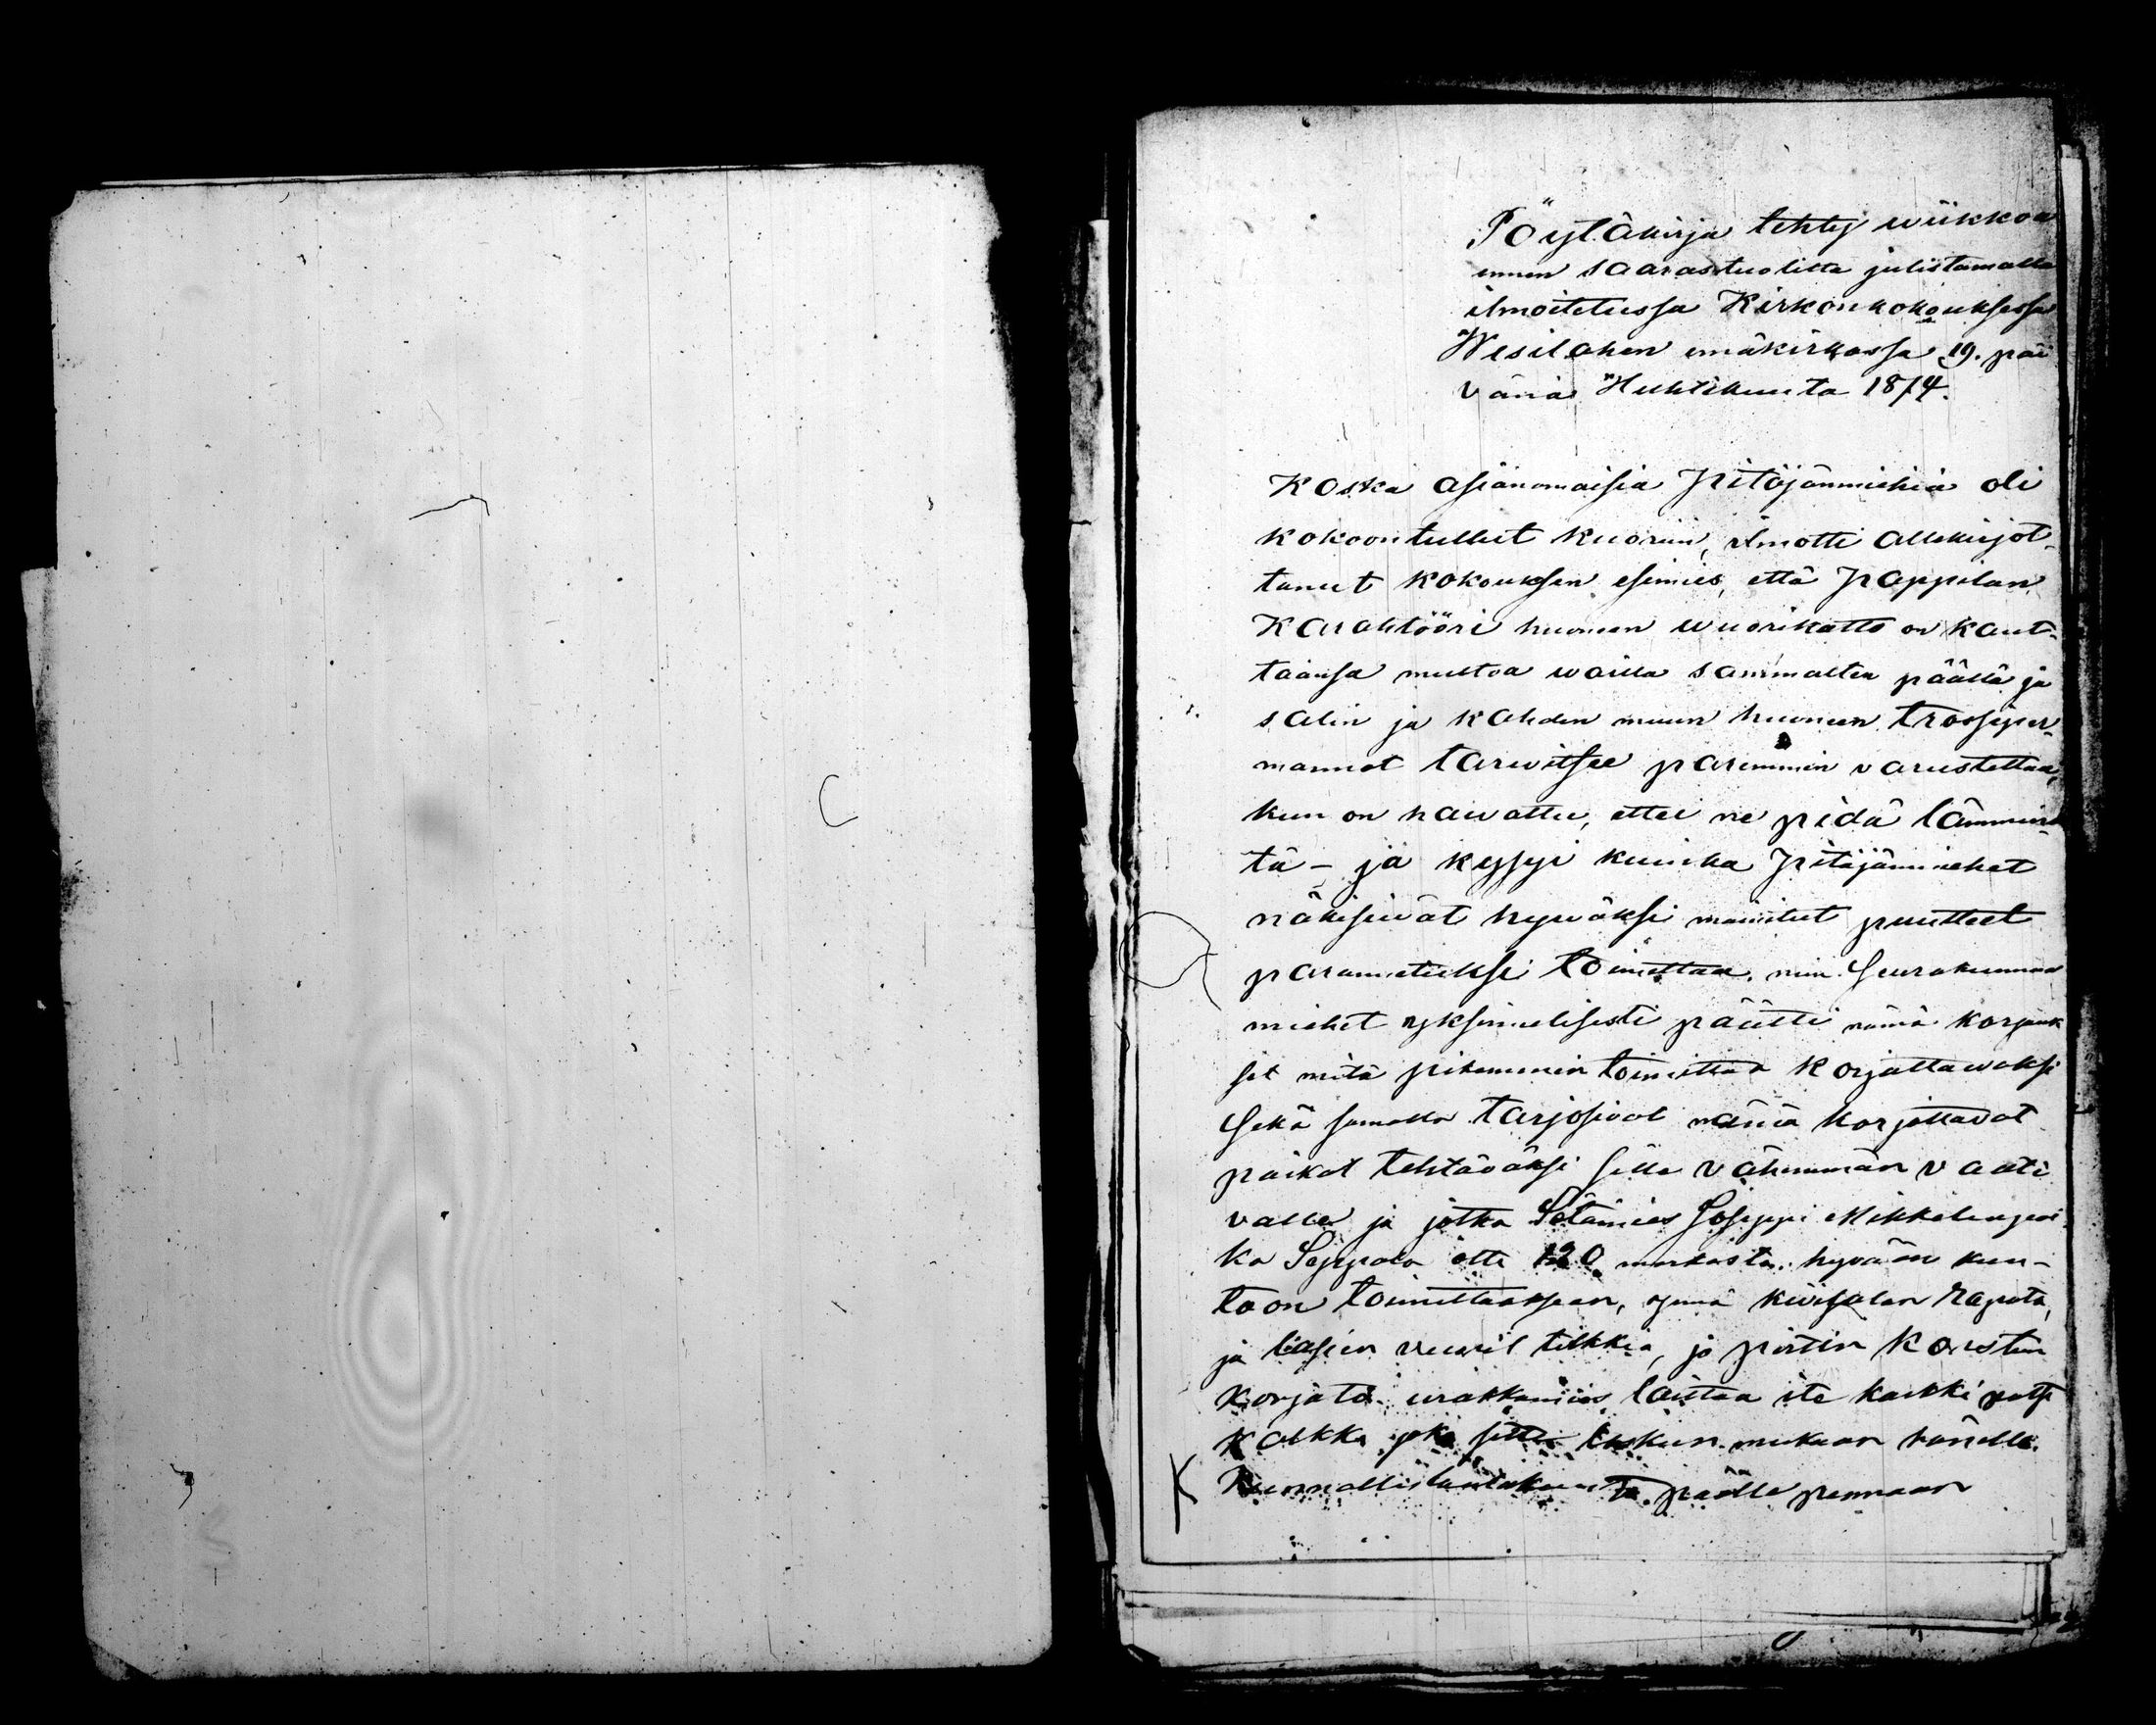 Pöytäkirja tehty wiikkoa
ennen saarastuolilta julistamalla
ilmoitetussa Kirkonkokouksessa
Wesilahen emäkirkossa 19. päi
vänä Huhtikuuta 1874.
Koska asianomaisia Pitäjänmiehiä oli
kokoontullut kuoriin, ilmotti allekirjot-
tanut kokouksen esimies, että Pappilan
Karahtööri huoneen wuorikatto on kaut-
taansa multoa wailla sammalten päällä ja
salin ja kahden muun huoneen trossiper-
mannot tarwitsee paremmin varustettaa,
kun on hawattu, ettei ne pidä lämmin-
tä – ja kysyi kuinka Pitäjänmiehet
näkisiwät hywäksi mainitut puutteet
parannetuksi toimittaa, niin Seurakunnan
miehet yksimielisesti päätti nämä korjauk
set mitä pikemmin toimittaa korjattawaksi
Sekä samalla tarjosivat nämä korjattavat
paikat tehtäväksi sille vähemmän vaati
valle ja jotka Sotamies Joseppi Mikkelinpoi
ka Seppälä otti 120 markasta hyvään kun-
toon toimittaaksean, ynnä kivijalan rapata,
ja lasien vuoril tilkkiä, ja pirtin korsten
korjata. urakkamies laittaa ite kaikki
kalkki joka sitte laskun mukaan hänelle
Kunnallislautakunta päälle pannaan